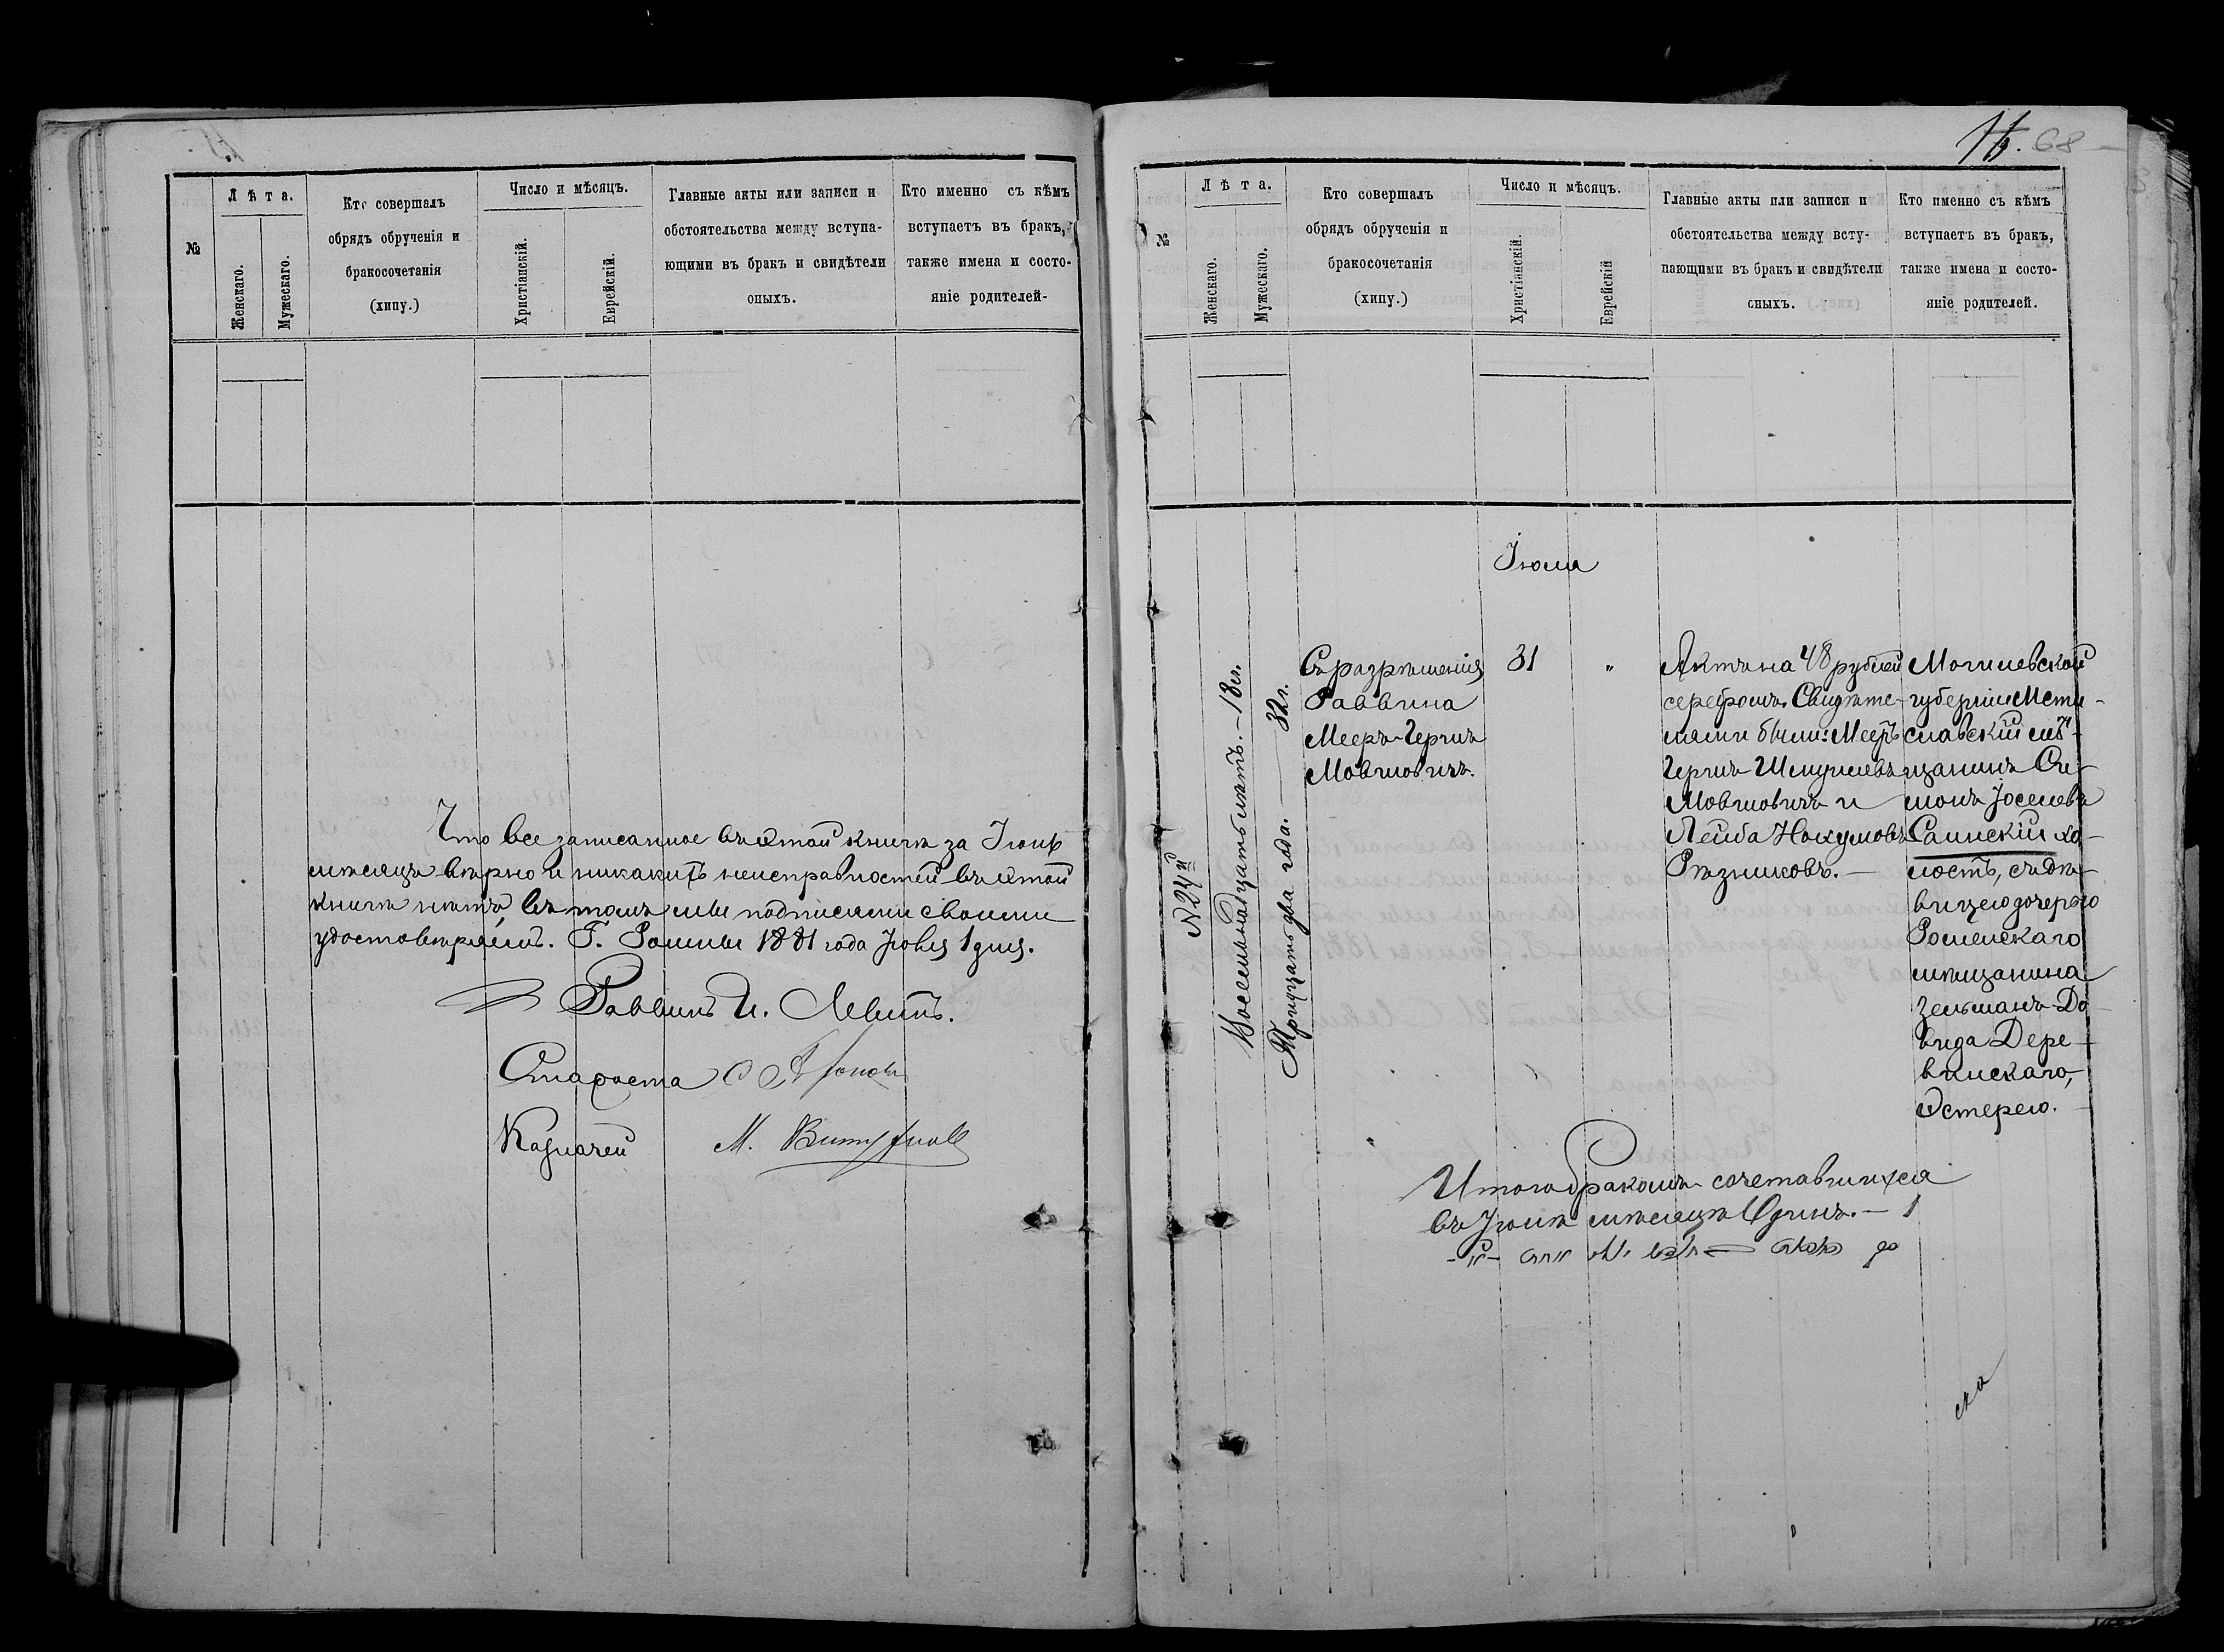 №
Лѣта.
Женскаго.
Мужескаго.
Кто совершалъ
обрядъ обрученія и
бракосочетанія
(хипу.)
Число и мѣсяцъ.
Христіанскій.
Еврейскій.
Главные акты или записи и
обстоятельства между вступа-
ющими въ бракъ и свидѣтели
оныхъ.
Кто именно съ кѣмъ
вступаетъ въ бракъ,
также имена и состо-
яніе родителей-
Что все записанное въ этой книгѣ за Іюнь
мѣсяцъ вѣрно и никакихъ неисправностей въ этой
книгѣ нѣтъ, въ томъ мы подписями своими
удостовѣряемъ. Г. Ромны 1881 года Іюля 1 дня.
Раввинъ И. Левитъ.
Староста
Казначей М.
68
№
Лѣта.
Женскаго.
Мужескаго.
Кто совершалъ
обрядъ обрученія и
бракосочетанія
(хипу.)
Число и мѣсяцъ.
Христіанскій.
Еврейскій
Главные акты или записи и
обстоятельства между всту-
пающими въ бракъ и свидѣтели
оныхъ.
Кто именно съ кѣмъ
вступаетъ въ бракъ,
также имена и состо-
яніе родителей.
Іюля
№ 24й
Восемнадцать лѣтъ. — 18 л.
Тридцать два года. — 32 г.
Съ разрѣшенія
Раввина
Мееръ-Герцъ
Мовшовичъ.
31
"
Актъ на 48 рублей
серебромъ. Свидѣте-
лями были: Мееръ
Герцъ Шмуилевъ
Мовшовичъ и
Лейба Нохумовъ
Рѣзниковъ. —
Могилевской
губерніи Мсти-
славскій мѣ-
щанинъ Си-
монъ Іоселевъ
Саинскій хо-
лостъ, съ дѣ-
вицею дочерью
Роменскаго
мѣщанина
Зельманъ-До-
вида Дере-
винскаго,
Эстерею.
Итого бракомъ сочетавшихся
въ Іюлѣ мѣсяцѣ Одинъ. — 1